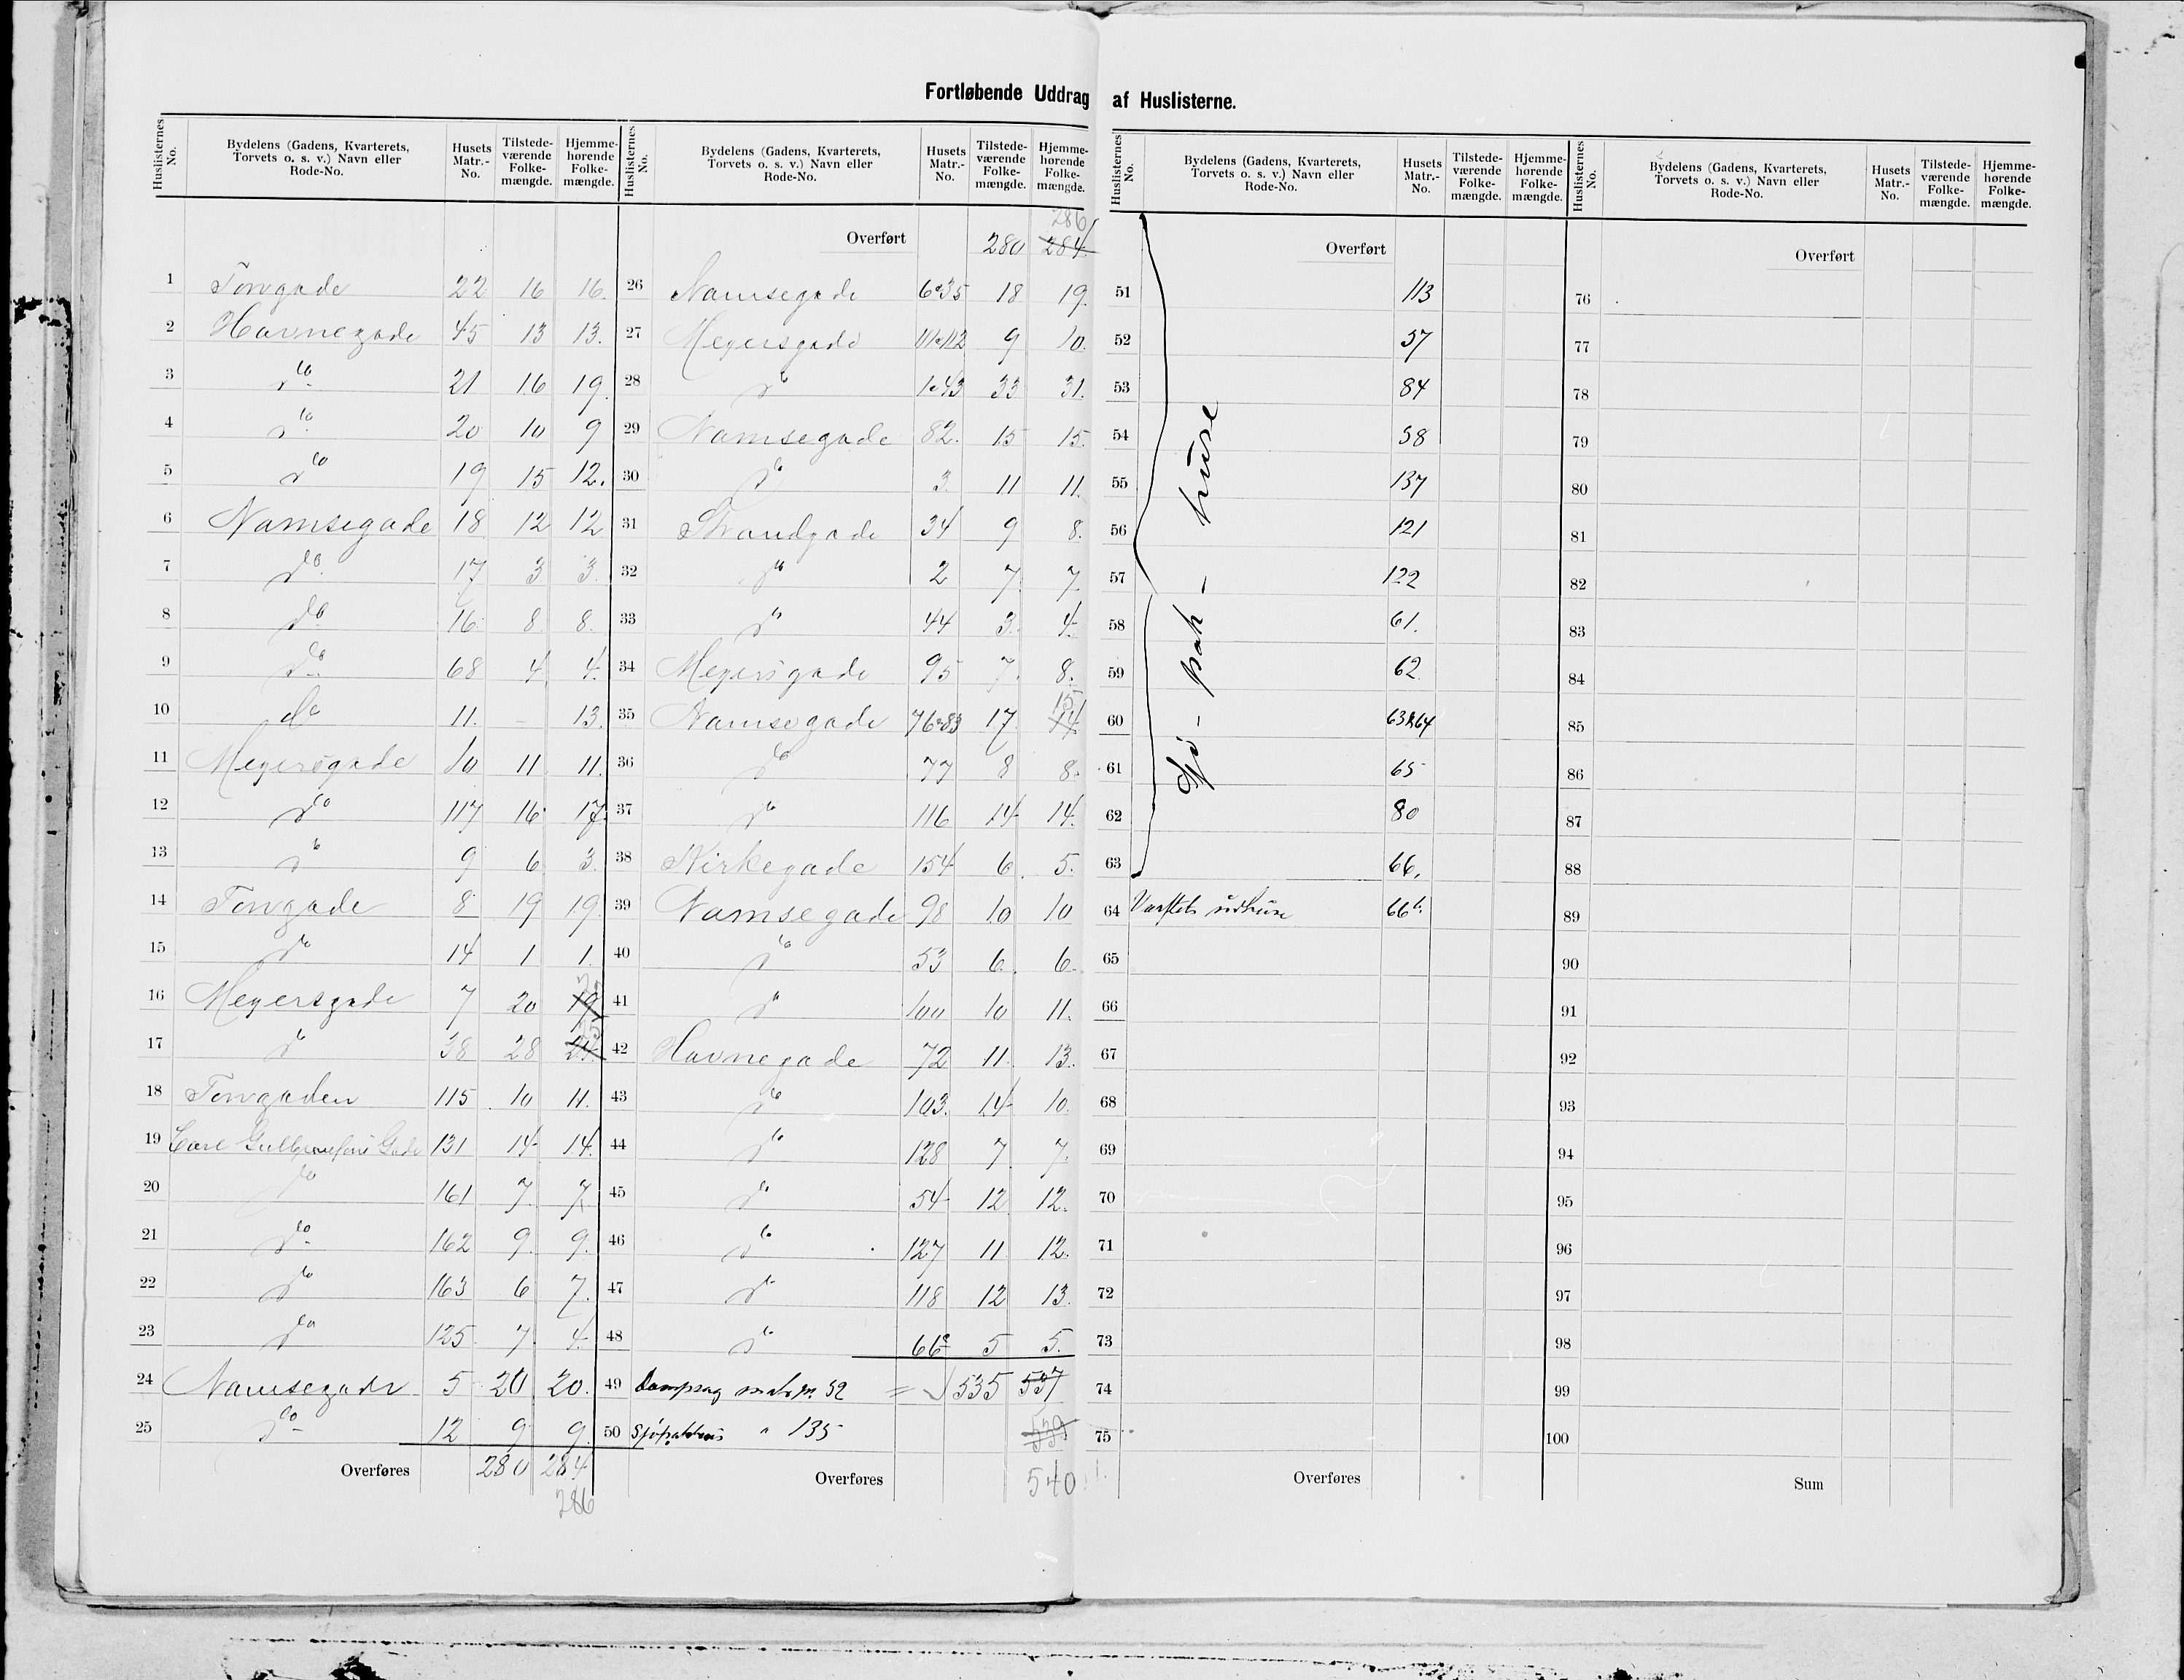 Fortløbende Uddrag af Huslisterne.
Huslisternes No. Bydelens (Gadens, Kvarterets, Torvets o. s. v.) Navn eller Rode-No. Husets Matr.-No. Tilstede-værende Folke-mængde. Hjemme-hørende Folke-mængde.
1 Torvgade 22 16 16.
2 Havnegade 45 13 13.
3 do 21 16 19.
4 do 20 10 9
5 do 19 15 12.
6 Namsegade 18 12 12
7 do 17 3 3.
8 do 16 8 8.
9 do 68 4 4.
10 do 11. - 13.
11 Meyersgade 10 11 11.
12 do 117 16 17.
13 do 9 6 3.
14 Torvgade 8 19 19.
15 do 14 1 1.
16 Meyersgade 7 20 19
17 do 38 28 24 25
18 Torvgaden 115 10 11.
19 Carl Gulbransons Gade 131 14 14.
20 do 161 7 7.
21 do 162 9. 9.
22 do 163 6 7.
23 do 125 7 4.
24 Namsegade 5 20 20.
25 do 12 9 9.
Overføres 280 284
286
Huslisternes No. Bydelens (Gadens, Kvarterets, Torvets o. s. v.) Navn eller Rode-No. Husets Matr.-No. Tilstede-værende Folke-mængde. Hjemme-hørende Folke-mængde.
286
Overført 280 284
26 Namsegade 6&35 18 19.
27 Meyersgade 111&112 9 10.
28 do 1&43 33 31.
29 Namsegade 82. 15 15.
30 do 3. 11 11.
31 Strandgade 34 9 8.
32 do 2 7 7.
33 do 44 3 4.
34 Meyersgade 95 7. 8.
35 Namsegade 76&83 17 14 15
36 do 77 8 8.
37 do 116 14 14.
38 Kirkegade 154 6. 5.
39 Namsegade 98 10 10
40 do 53 6. 6.
41 do 100 10 11.
42 Havnegade 72 11. 13.
43 do 103. 14 10.
44 do 128 7 7.
45 do 54 12 12.
46 do 127 11 12.
47 do 118 12 13.
48 do 66a 5 5.
49 Dampsag matr. n. 52 = 535 537
50 Sjøpakhus " 135 539
Overføres 540
Huslisternes No. Bydelens (Gadens, Kvarterets, Torvets o. s. v.) Navn eller Rode-No. Husets Matr.-No. Tilstede-værende Folke-mængde. Hjemme-hørende Folke-mængde.
Overført
Sjø-pak-huse
51 113
52 57
53 84
54 58
55 137
56 121
57 122
58 61.
59 62
60 63&64
61 65
62 80
63 66.
64 Værftets udhuse 66b.
65
66
67
68
69
70
71
72
73
74
75
Overføres
Huslisternes No. Bydelens (Gadens, Kvarterets, Torvets o. s. v.) Navn eller Rode-No. Husets Matr.-No. Tilstede-værende Folke-mængde. Hjemme-hørende Folke-mængde.
Overført
76
77
78
79
80
81
82
83
84
85
86
87
88
89
90
91
92
93
94
95
96
97
98
99
100
Sum